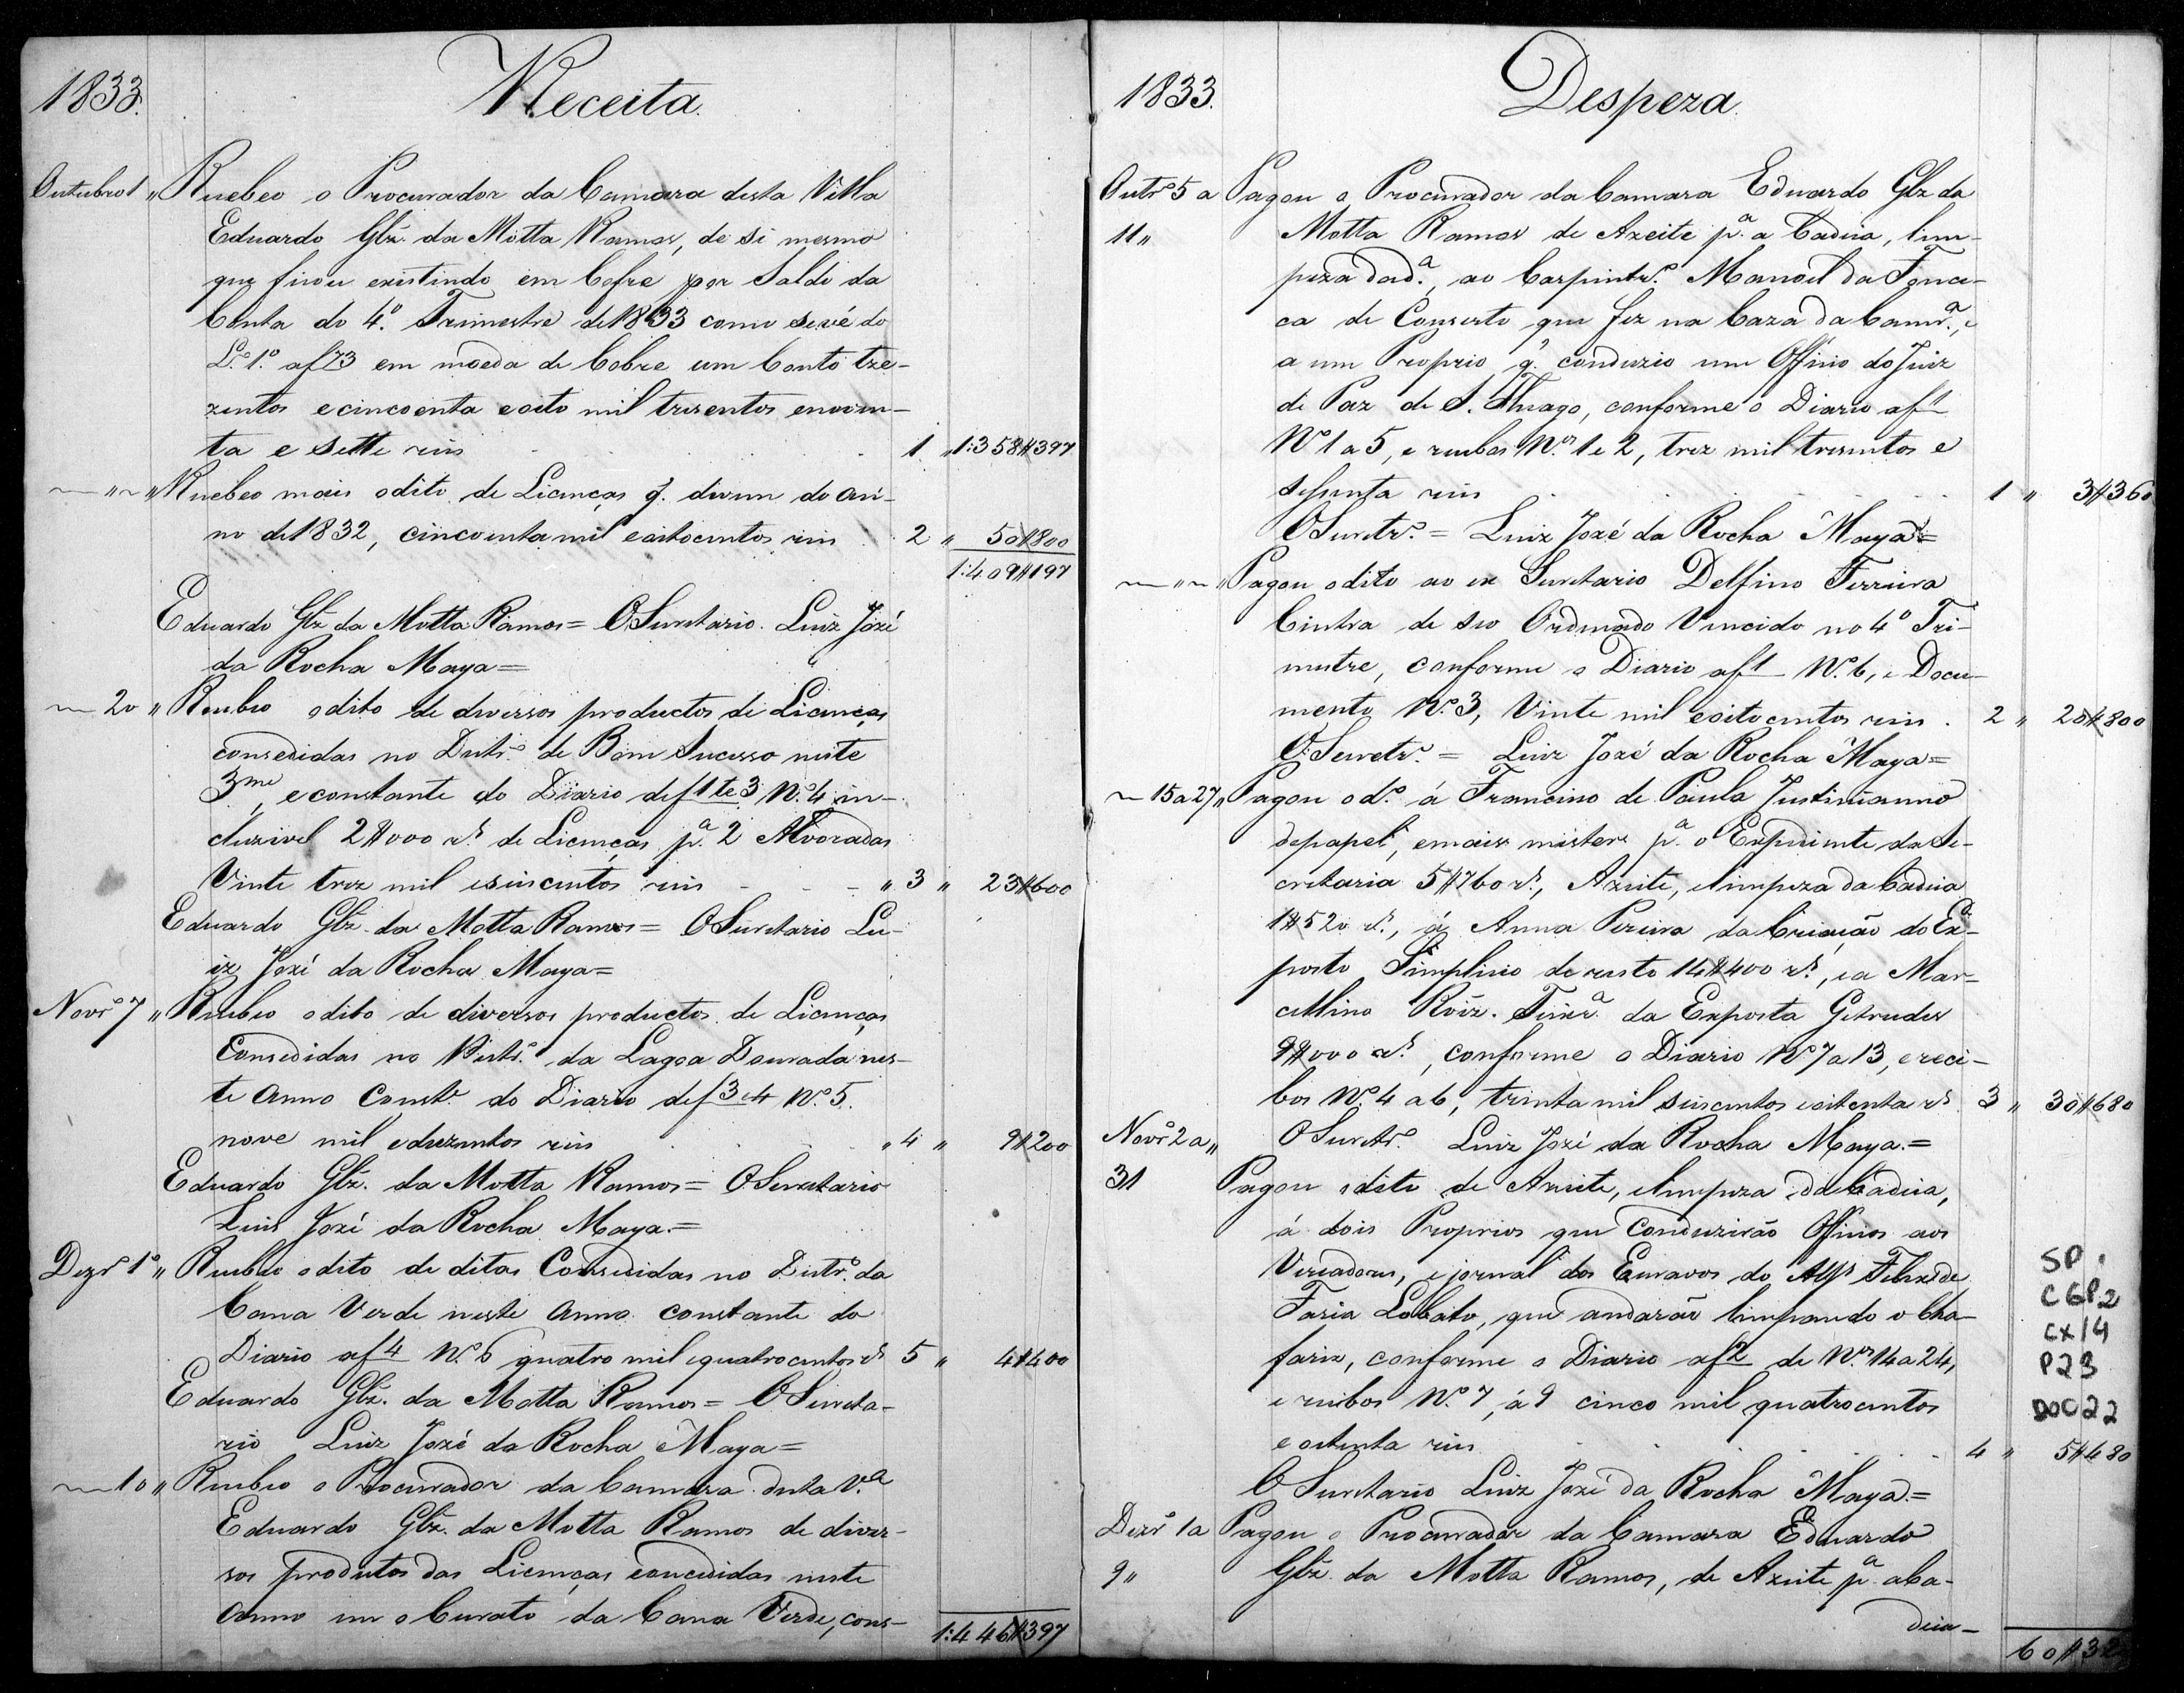 1833.
Receita.
Outubro 1 " Recebeo o Procurador da Camara desta Villa
Eduardo Glz. da Motta Ramos, de si mesmo
que ficou existindo em Cofre por Saldo da
Conta do 4º. Trimestre de 1833 como se vé do
L.º 1.º a f 73 em moeda de Cobre um Conto tre-
zentos e cincoenta e oito mil tresentos e noven-
ta e sette reis 1 " 1:358$397
" Recebeo mais o dito de Licenças q. diverm do an-
no de 1832, cincoenta mil e oitocentos reis 2 " 50$800
1:409$197
Eduardo Glz da Motta Ramos = O Secretario. Luiz Jozé
da Rocha Maya =
20 " Recebeo o dito de diversos productos de Licenças
consedidas no Distr.º de Bom Sucesso neste
3.me, e constante do Diario de f 1 te 3 N.º 4 in-
cluzivel 2$000 rs de Licenças p.ª 2 Alvoradas
Vinte trez mil e seiscentos reis " 3 " 23$600
Eduardo Glz. da Motta Ramos = O Secretario Lu-
iz Jozé da Rocha Maya =
Novr.º 7 " Recebeo o dito de diversos productos de Licenças
Consedidas no Distr.º da Lagoa Dourada nes-
te Anno Const.e do Diario de f 3 e 4 N.º 5.
nove mil e duzentos reis " 4 " 9$200
Eduardo Glz. da Motta Ramos = O Secretario
Luis Jozé da Rocha Maya. =
Dezr.º 1º " Recebeo o dito de ditas Consedidas no Distr.º da
Cana Verde neste Anno constante do
Diario a f 4 N.º 6 quatro mil e quatrocentos rs 5 " 4$400
Eduardo Glz. da Motta Ramos = O Secreta-
rio Luiz Jozé da Rocha Maya =
10 " Recebeo o Procurador da Camara desta V.ª
Eduardo Glz. da Motta Ramos de diver-
sos produtos das Licenças concedidas neste
Anno em o Curato da Cana Verde, cons-
1:446$397
1833.
Despeza.
Outr.º 5 a Pagou o Procurador da Camara Eduardo Glz da
11 " Motta Ramos de Azeite p.ª a Cadeia, lim-
peza da d.ª, ao Carpintr.º Manoel da Fonce-
ca de Conserto que fez na Caza da Camr.ª, e
a um Proprio q.' conduzio um Officio do Juiz
de Paz de S. Thiago, conforme o Diario a f 1
Nº 1 a 5, e recibos N.os 1 e 2, trez mil tresentos e
sessenta reis 1 " 3$360
O Secretr.º = Luiz Jozé da Rocha Maya =
" Pagou o dito ao ex Secretario Delfino Ferreira
Cintra de seo Ordenado Vencido no 4º Tri-
mestre, conforme o Diario a f 1 N.º 6, e Docu-
mento N.º 3, Vinte mil e oitocentos reis . 2 " 20$800
O Secretr.º = Luiz Jozé da Rocha Maya =
15 a 27 " Pagou o d.º á Francisco de Paula Justinianno
de papel, e mais misteres p.ª o Expediente da Se-
cretaria 5$760 rs, Azeite, e limpeza da Cadeia
1$520 rs., á Anna Pereira da Criação do Ex-
posto Simplicio de resto 14$400 rs, e a Mar-
cellino Roiz. Teixr.ª da Exposta Getrudes
9$000 rs., conforme o Diario Nº 7 a 13, e reci-
bos N.º 4 a 6, trinta mil seiscentos e oitenta rs 3 " 30$680
Novr.º 2 a " O Secretr.º Luiz Jozé da Rocha Maya. =
31 Pagou o dito de Azeite, e limpeza da Cadeia,
á dois Proprios que Conduzirão Officios aos
Vereadores, e jornal dos Escravos do Alfs Felis de
Faria Lobato, que andarão limpando o Cha-
fariz, conforme o Diario a f 2 de N.os 14 a 24,
e recibos N.º 7, á 9 cinco mil quatrocentos
e oitenta reis 4 " 5$480
O Secretario Luiz Jozé da Rocha Maya =
Dezr.º 1 a Pagou o Procurador da Camara Eduardo
9 " Glz da Motta Ramos, de Azeite p.ª a Ca-
deia-
60$32
SP.
CGP2
CX14
P23
DOC22